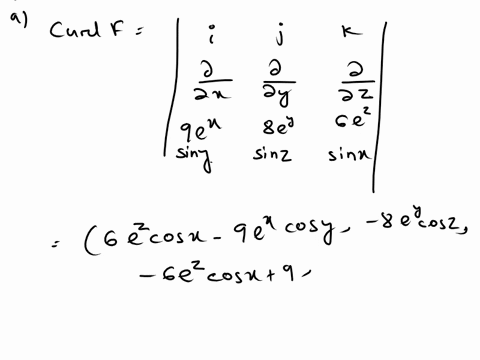 a) Curl F = | i j k |
∂/∂x ∂/∂y ∂/∂z
9e^x 8e^y 6e^z
siny sinz sinx
= (6e^z cosx - 9e^x cosy, -8e^y cosz,
-6e^z cosx + 9,